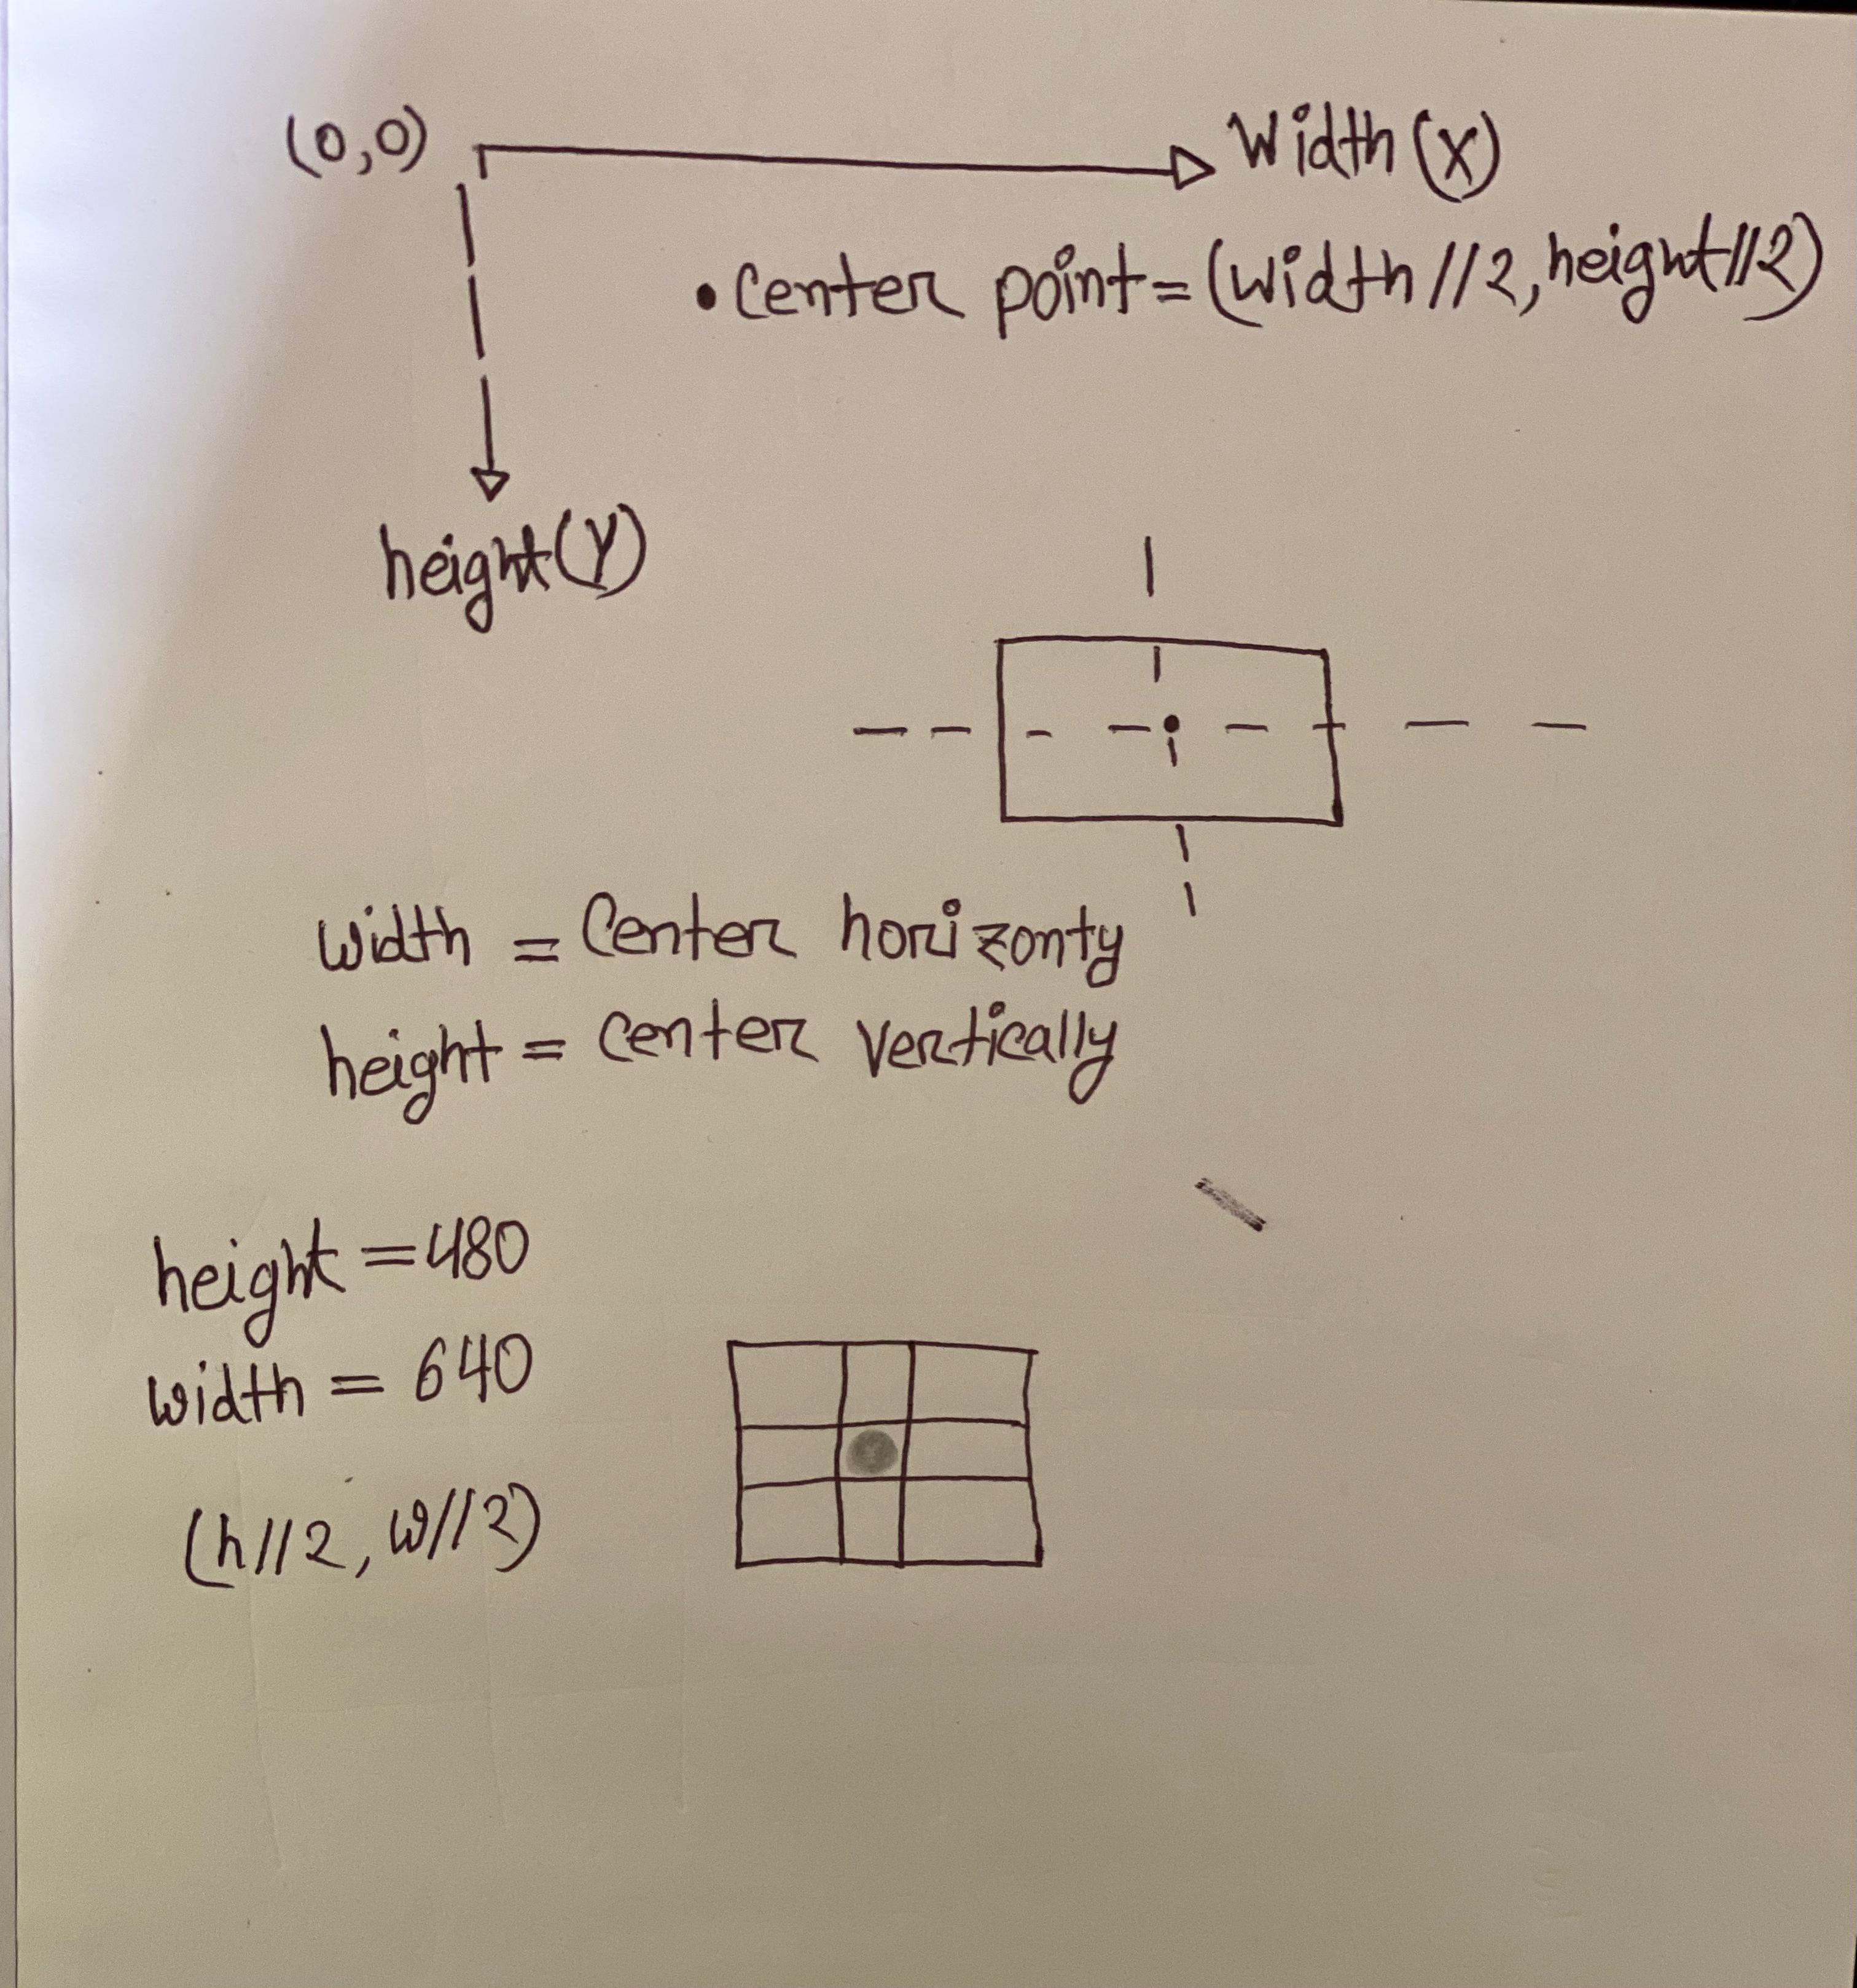 (0,0) Width (X)
• Center point = (width//2, height//2)
height(Y)
width = Center horizonty
height = center vertically
height = 480
width = 640
(h//2, w//2)